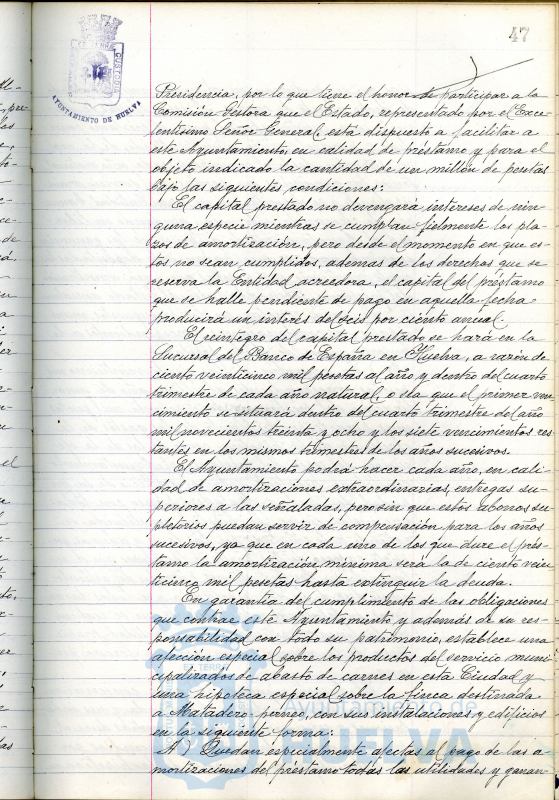 47
AYUNTAMIENTO DE HUELVA
Presidencia, por lo que tiene el honor de participar a la
Comisión Gestora que el Estado, representado por el Exce-
lentísimo Señor General, está dispuesto a facilitar a
este Ayuntamiento, en calidad de préstamo y para el
objeto indicado la cantidad de un millón de pesetas
bajo las siguientes condiciones:
El capital prestado no devengará intereses de nin
guna especie mientras se cumplan fielmente los pla
zos de amortización, pero desde el momento en que es-
tos no sean cumplidos, además de los derechos que se
reserva la Entidad acreedora, el capital del préstamo
que se halle pendiente de pago en aquella fecha
producirá un interés del seis por ciento anual.
El reintegro del capital prestado se hará en la
Sucursal del Banco de España en Huelva, a razón de
ciento veinticinco mil pesetas al año y dentro del cuarto
trimestre de cada año natural, o sea que el primer ven
cimiento se situará dentro del cuarto trimestre del año
mil novecientos treinta y ocho y los siete vencimientos res
tantes en los mismos trimestres de los años sucesivos.
El Ayuntamiento podrá hacer cada año, en cali-
dad de amortizaciones extraordinarias, entregas su-
periores a las señaladas, pero sin que estos abonos su
pletorios puedan servir de compensación para los años
sucesivos, ya que en cada uno de los que dure el prés-
tamo la amortización mínima será la de ciento vein
ticinco mil pesetas hasta extinguir la deuda.
En garantía del cumplimiento de las obligaciones
que contrae este Ayuntamiento y además de su res-
ponsabilidad con todo su patrimonio, establece una
afección especial sobre los productos del servicio muni
cipalizados de abasto de carnes en esta Ciudad y
una hipoteca especial sobre la finca destinada
a Matadero público, con sus instalaciones y edificios
en la siguiente forma:
A) Quedan especialmente afectas al pago de las a-
mortizaciones del préstamo todas las utilidades y ganan-
Ayuntamiento de
HUELVA